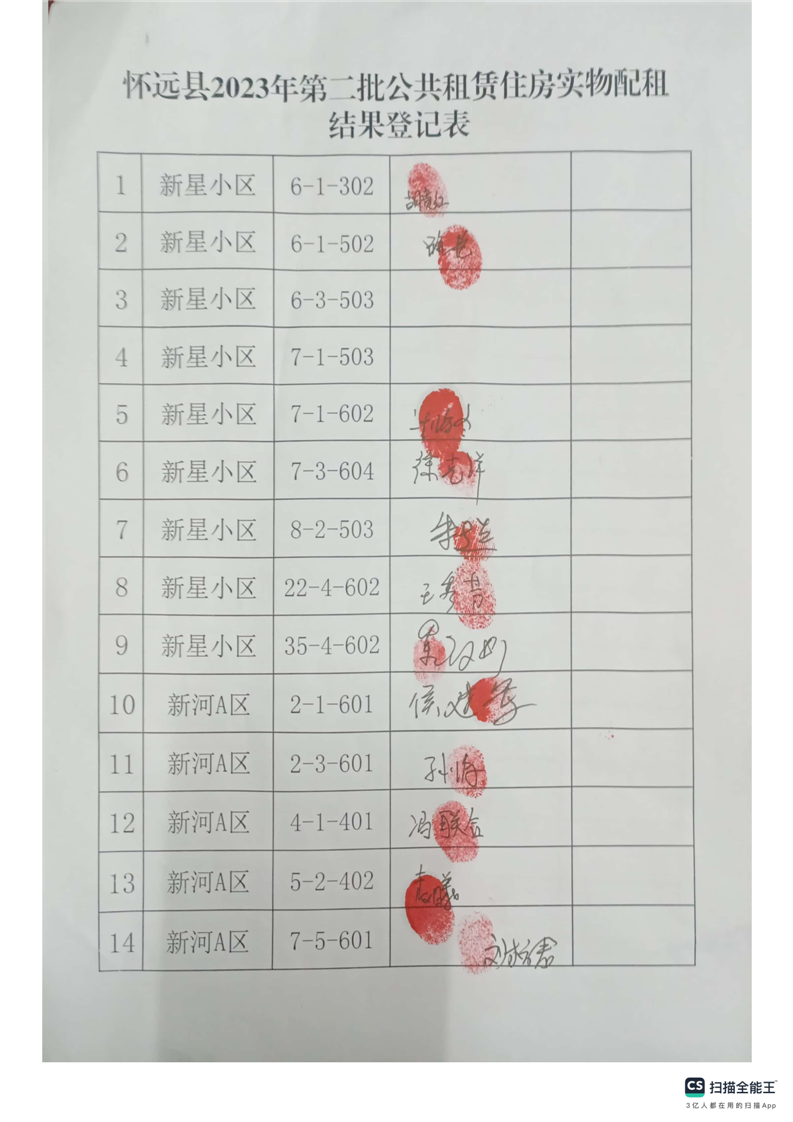 怀远县2023年第二批公共租赁住房实物配租
结果登记表
1 新星小区 6-1-302
2 新星小区 6-1-502
3 新星小区 6-3-503
4 新星小区 7-1-503
5 新星小区 7-1-602
6 新星小区 7-3-604 徐志洋
7 新星小区 8-2-503
8 新星小区 22-4-602 王秀芳
9 新星小区 35-4-602
10 新河A区 2-1-601 侯建
11 新河A区 2-3-601 孙海
12 新河A区 4-1-401 冯联合
13 新河A区 5-2-402
14 新河A区 7-5-601
CS 扫描全能王™
3亿人都在用的扫描App